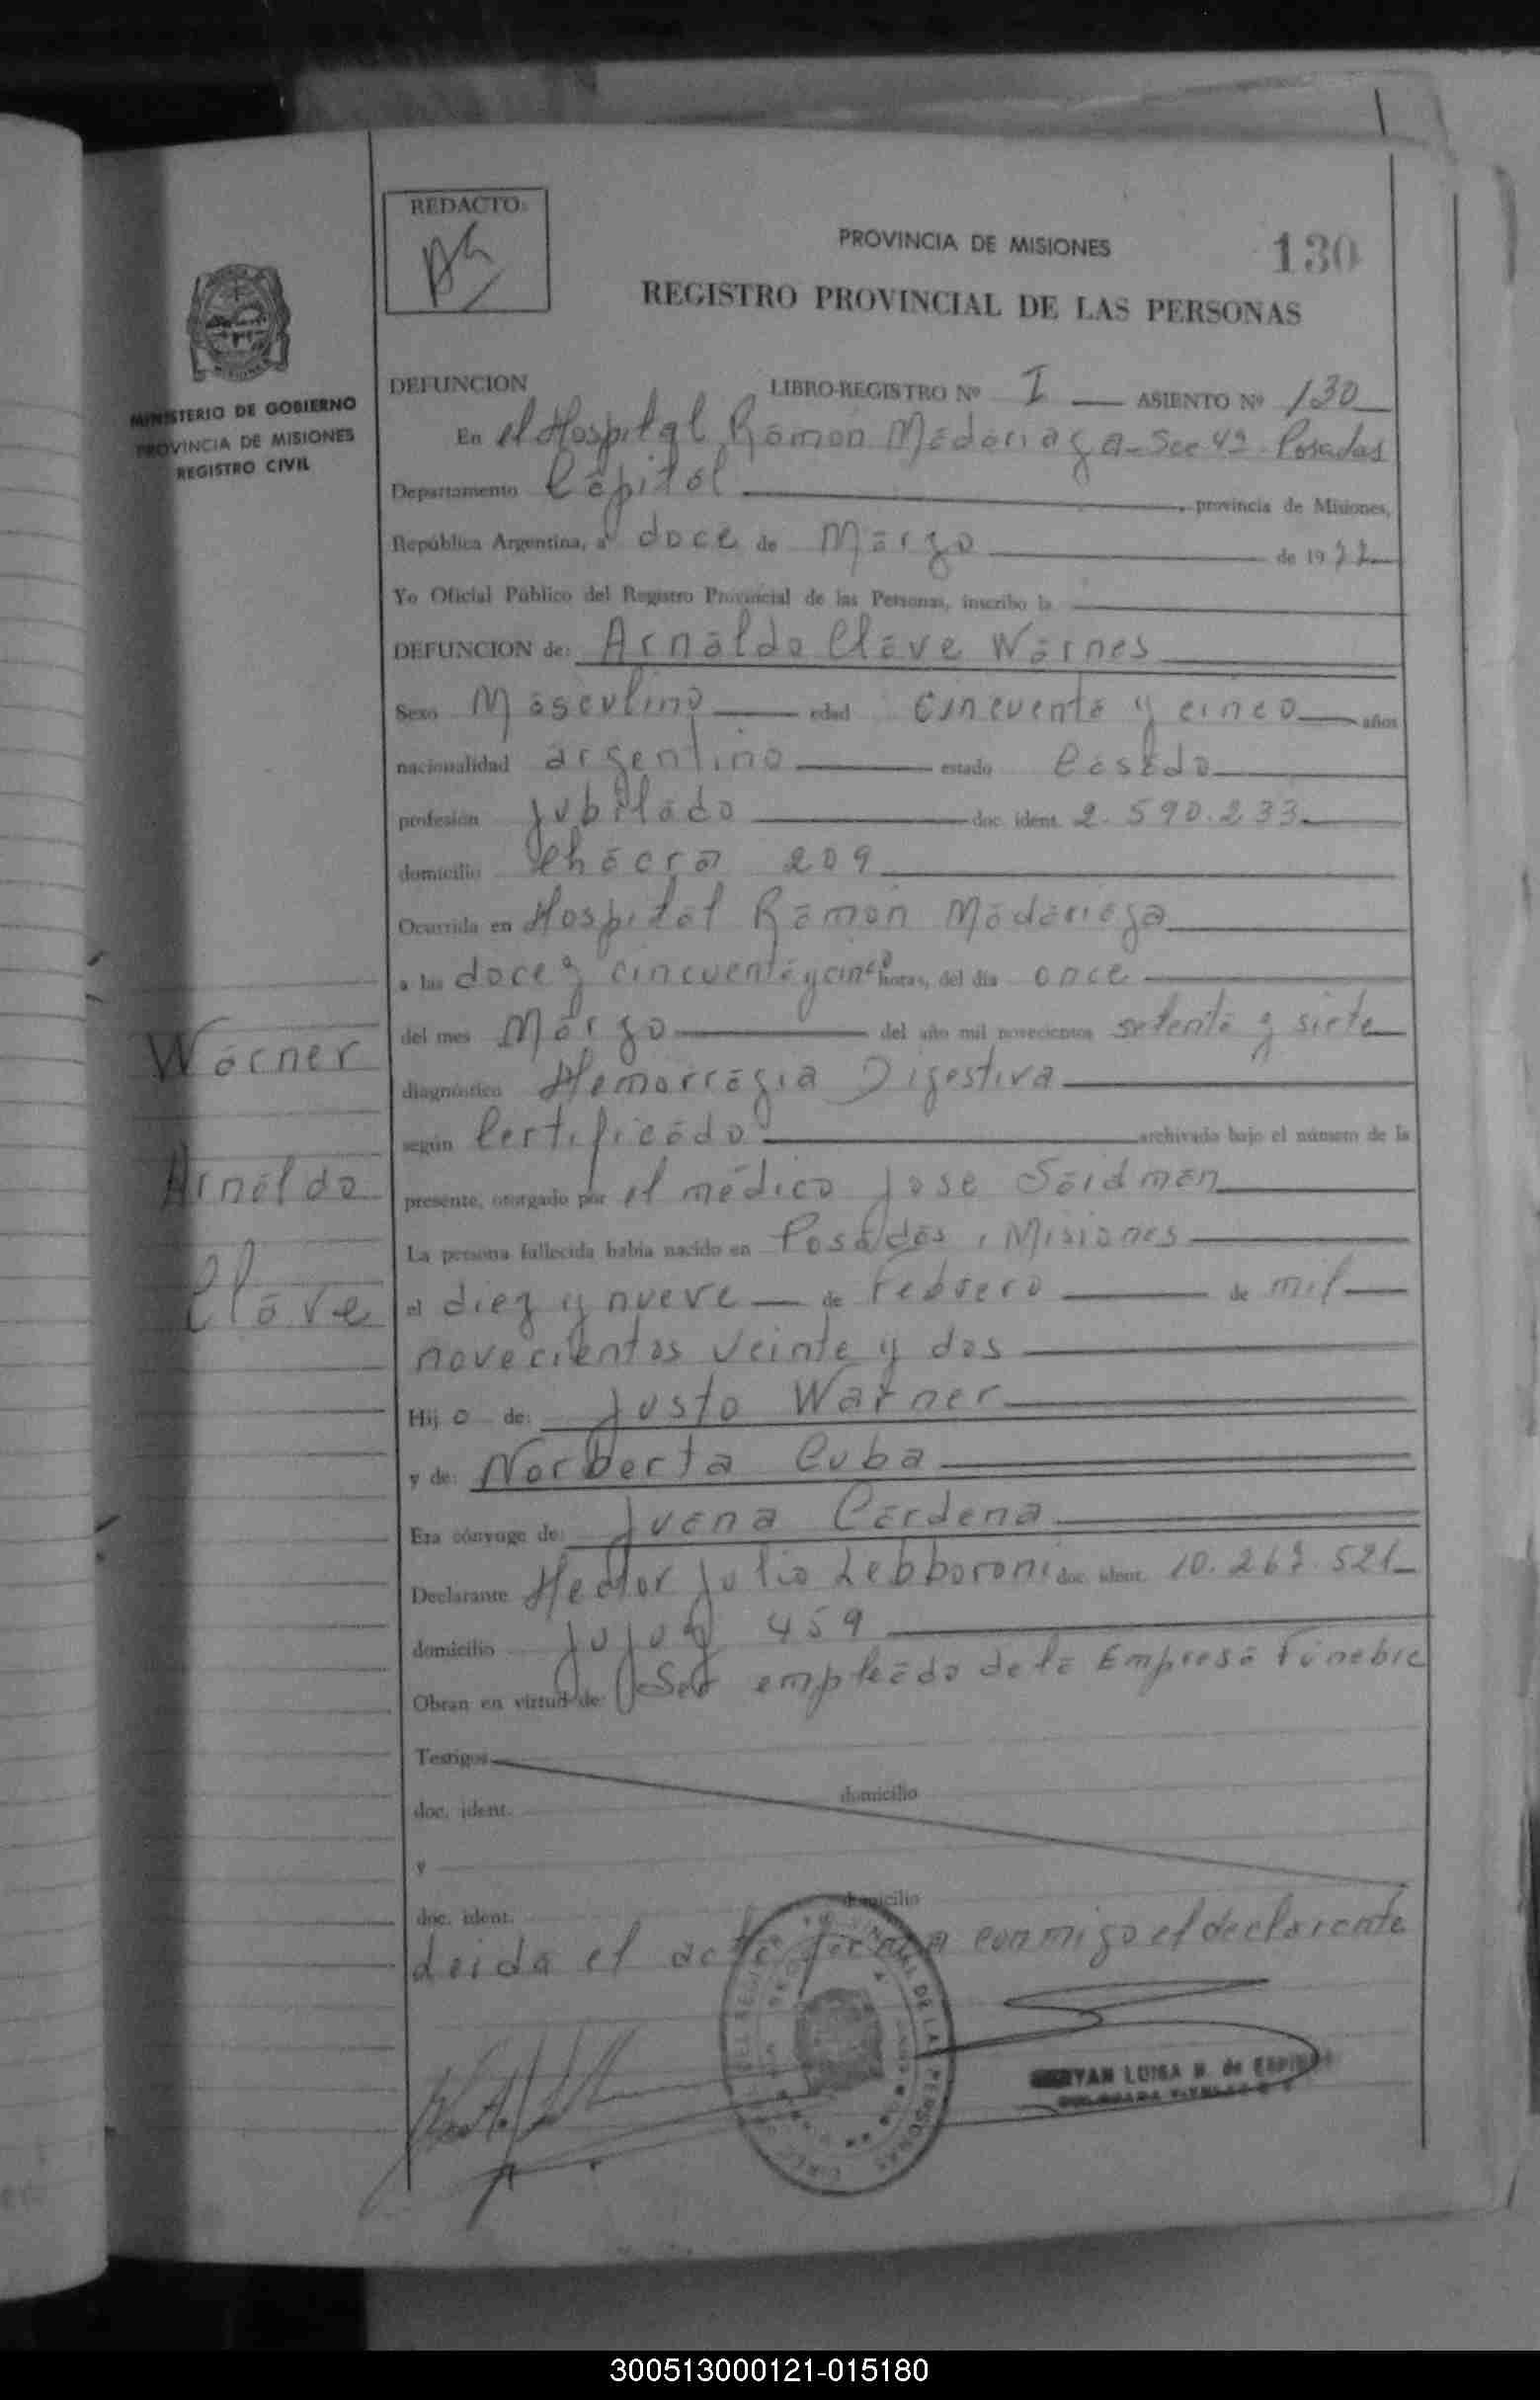 REDACTO:
PROVINCIA DE MISIONES
130
REGISTRO PROVINCIAL DE LAS PERSONAS
MINISTERIO DE GOBIERNO
PROVINCIA DE MISIONES
REGISTRO CIVIL
DEFUNCION LIBRO-REGISTRO Nº I ASIENTO Nº 130
En el Hospital Ramon Madariaga - Sec 4ª - Posadas
Departamento Capital, provincia de Misiones,
República Argentina, a doce de Marzo de 1977
Yo Oficial Público del Registro Provincial de las Personas, inscribo la
DEFUNCION de: Arnaldo Clave Warnes
Sexo Masculino edad cincuenta y cinco años
nacionalidad argentino estado Casado
profesión Jubilado doc. ident. 2.590.233
domicilio Chacra 209
Ocurrida en Hospital Ramon Madariaga
a las doce y cincuenta y cinco horas, del día once
del mes Marzo del año mil novecientos setenta y siete
Warner
diagnóstico Hemorragia Digestiva
según Certificado archivado bajo el número de la
Arnaldo
presente, otorgado por el médico Jose Saidman
La persona fallecida había nacido en Posadas, Misiones
Clave
el diez y nueve de Febrero de mil
novecientos veinte y dos
Hij o de: Justo Warner
y de: Norberta Cuba
Era cónyuge de: Juana Cardena
Declarante Hector Julio Lebboroni doc. ident. 10.267.521
domicilio Jujuy 459
Obran en virtud de: Ser empleado de la Empresa Funebre
Testigos
doc. ident. domicilio
y
doc. ident. domicilio
Leida el acta firma conmigo el declarante
LUISA
DE LAS PERSONAS
300513000121-015180